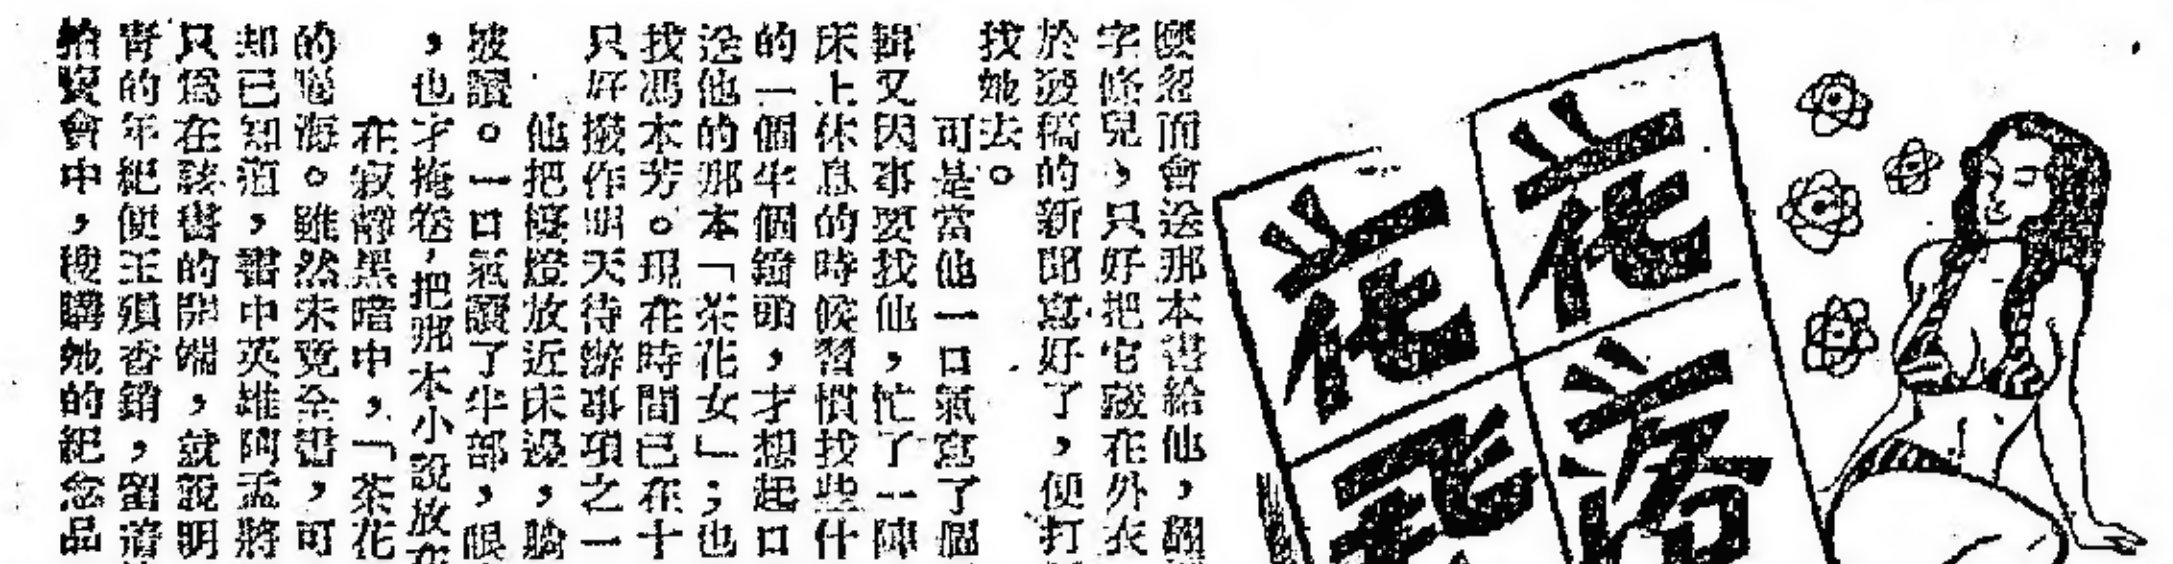 花落
花飛
麼忽而會送那本書給他,翻
字條兒,只好把它藏在外衣
於發稿的新聞寫好了,便打
找她去。
可是當他一口氣寫了個
輯又因事要找他,忙了一陣
床上休息的時候習慣找些什
的一個半個鐘頭,才想起口
送他的那本「茶花女」;也
找馮本芳。現在時間已在十
只好撥作明天待辦事項之一
他把檯燈放近床邊,臉
披讀。一口氣讀了半部,眼
,也才掩卷,把那本小說放在
在寂靜黑暗中,「茶花
的腦海。雖然未竟全書,可
却已知道,書中英雄阿孟將
只爲在該書的開端,就說明
青的年紀便玉殞香銷,劉濟
拍賣會中,搜購她的紀念品